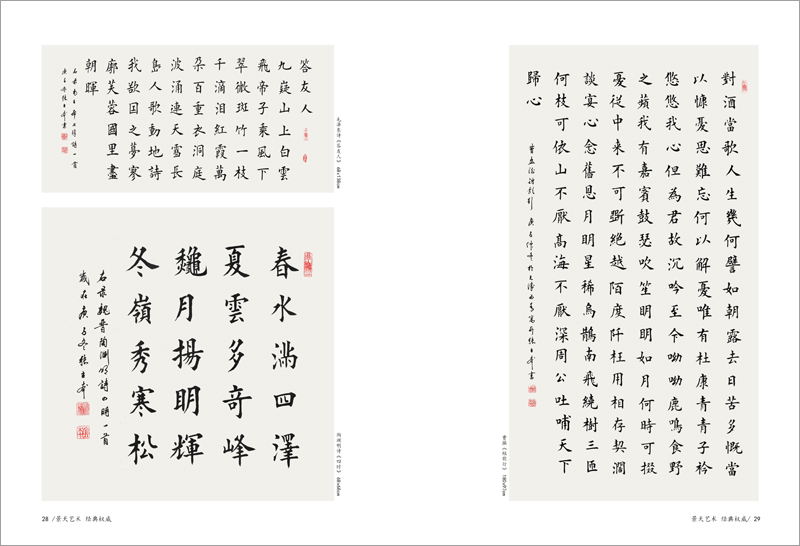 答友人
九嶷山上白雲
飛帝子乘風下
翠微斑竹一枝
千滴泪紅霞萬
朵百重衣洞庭
波涌連天雪長
島人歌動地詩
我欲因之夢寥
廓芙蓉國里盡
朝暉
毛泽东诗《答友人》
春水滿四澤
夏雲多奇峰
龝月揚明輝
冬嶺秀寒松
右录魏晋陶渊明詩四時一首
歲在庚子冬張玉
陶渊明诗《四时》 68x68cm
28 /景天艺术 经典权威
對酒當歌人生幾何譬如朝露去日苦多慨當
以慷憂思難忘何以解憂唯有杜康青青子衿
悠悠我心但為君故沉吟至今呦呦鹿鳴食野
之蘋我有嘉賓鼓瑟吹笙明明如月何時可掇
憂從中來不可斷絕越陌度阡枉用相存契濶
談宴心念舊恩月明星稀烏鵲南飛繞樹三匝
何枝可依山不厭高海不厭深周公吐哺天下
歸心
曹操《短歌行》 180x97cm
景天艺术 经典权威/ 29